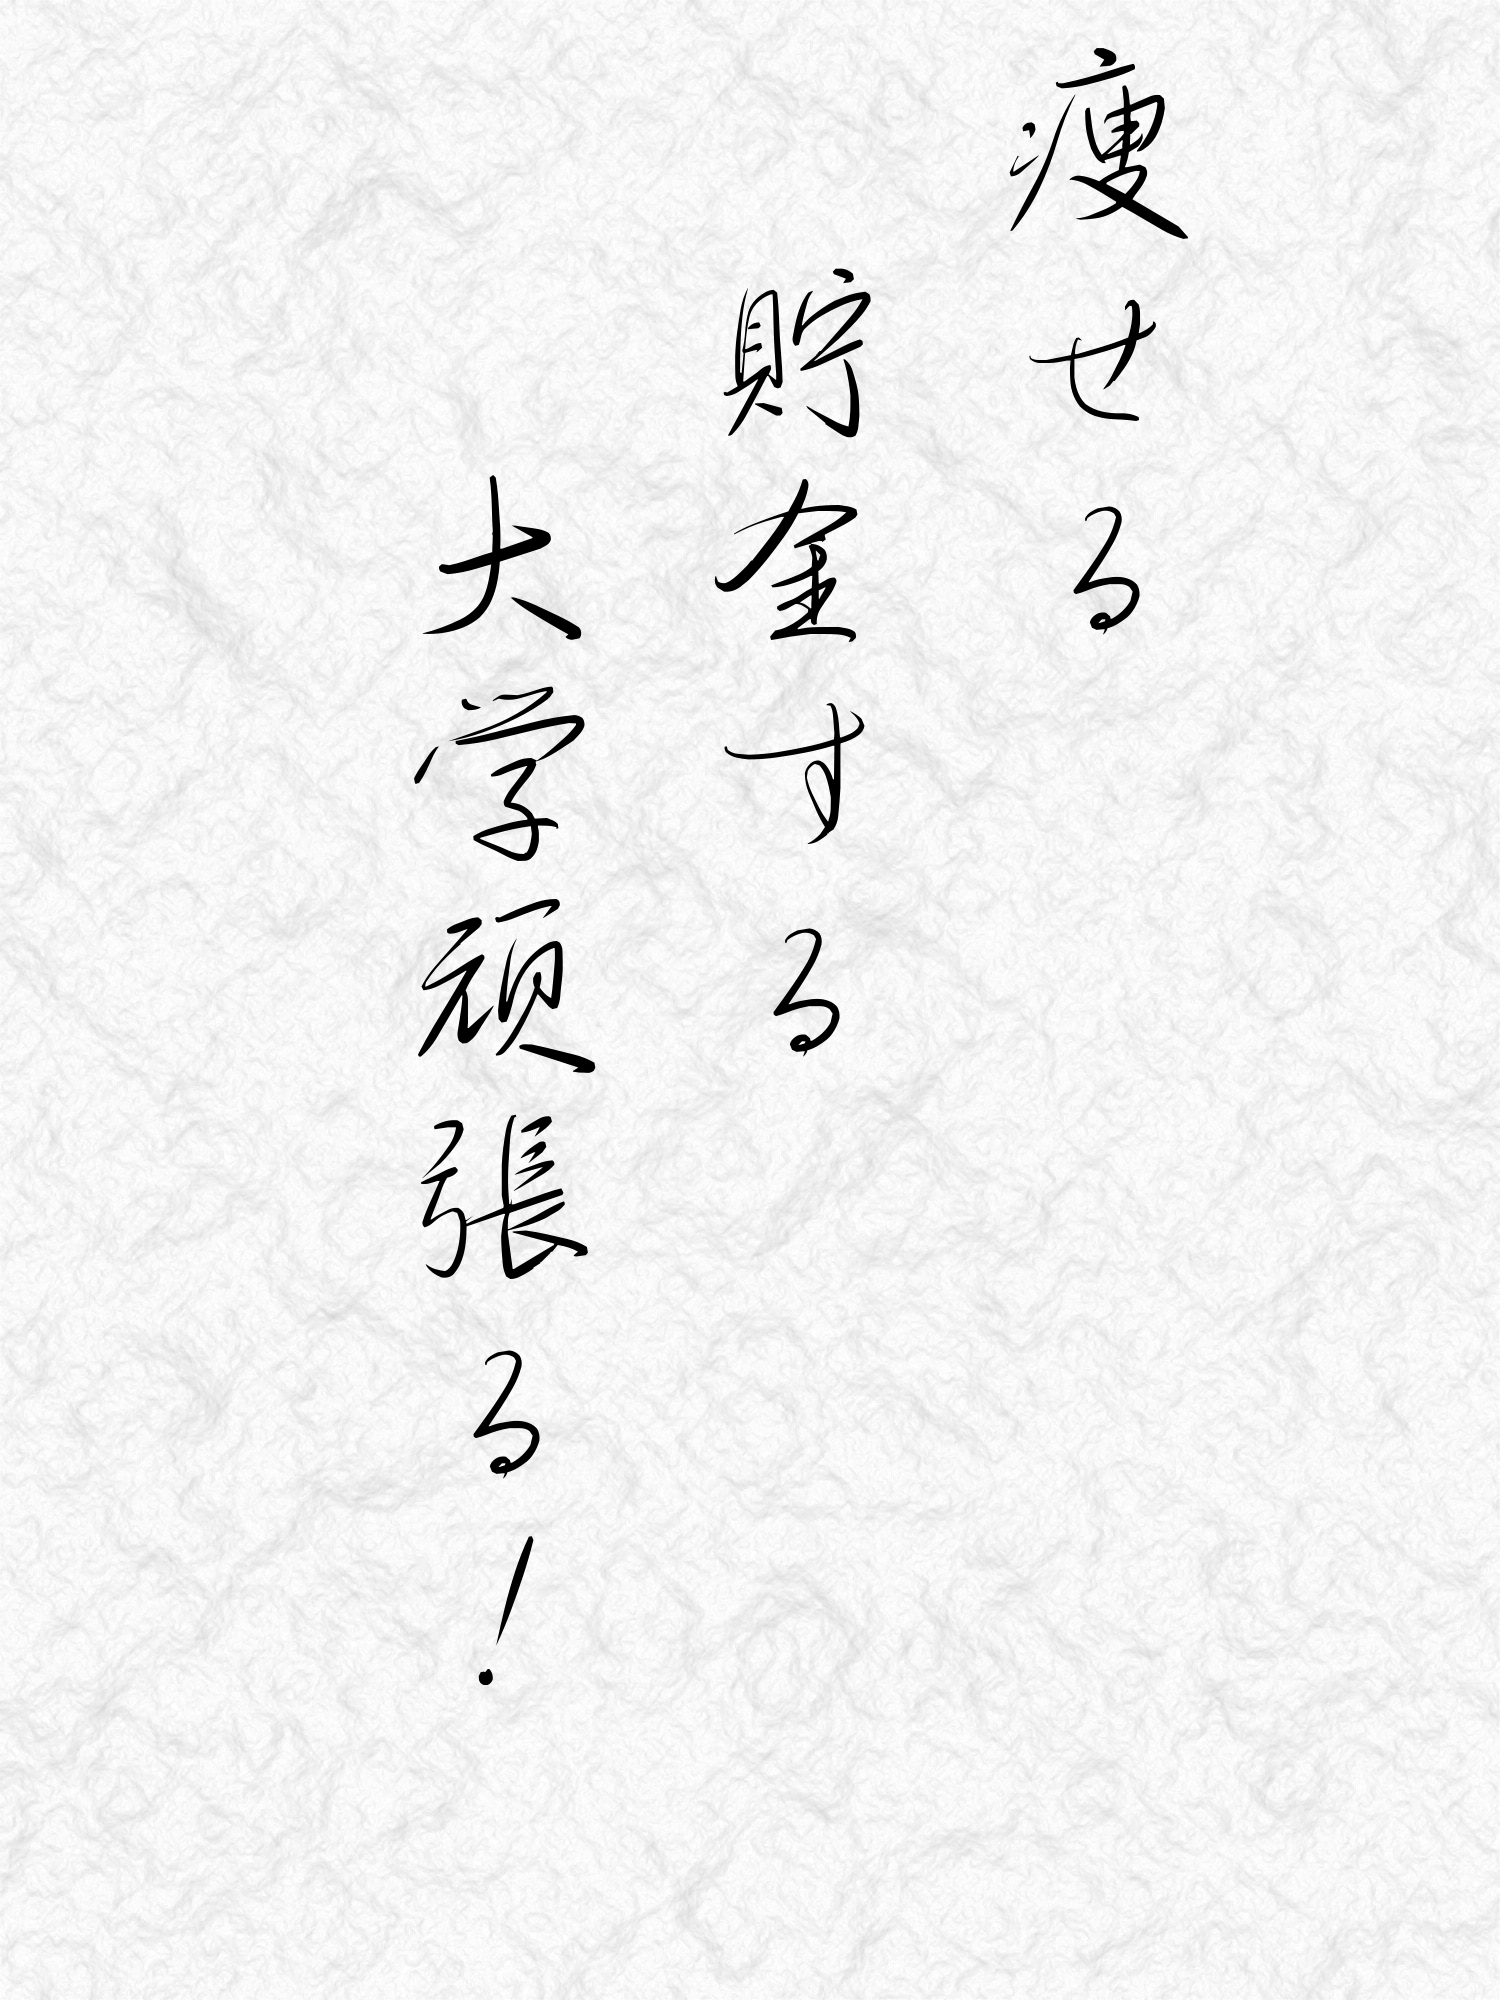 痩せる
貯金する
大学頑張る!